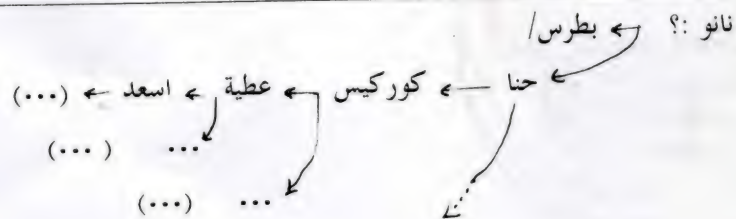 نانو :؟ ← بطرس/
حنا ← كوركيس ← عطية ← اسعد ← (...)
... (...)
... (...)